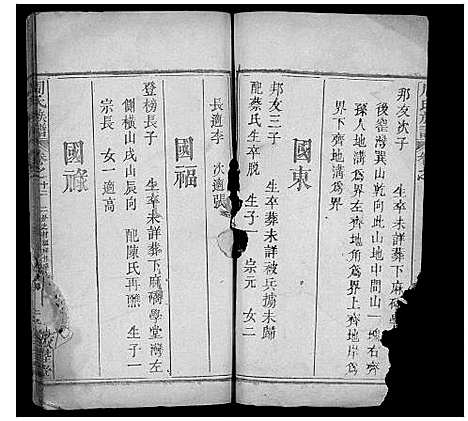 邦友次子　生卒未詳葬下麻磅學
後窰灣巽山乾向此山地中間山一塊右齊
孫人地溝爲界左齊地角爲界上齊地岸爲
界下齊地溝爲界
國東
邦友三子　生卒葬未詳被兵擄未歸
配蔡氏生卒脫　生子一　宗元　女二
長適李　次適張
國福
登榜長子　生卒未詳葬下麻磅學堂灣左
側橫山戌山辰向　配陳氏再醮　生子一
宗長　女一適高
國祿
周氏族譜